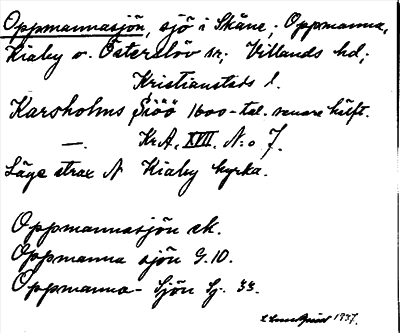 Oppmannasjön, sjö i Skåne; Oppmanna,
Kiaby o. Österslöv sn; Villands hd;
Kristianstads l.
Karsholms Siöö 1600-tal. senare hälft.
— Kr.A. XVII. N:o 7.
Läge strax N Kiaby kyrka.
Oppmannasjön ek.
Oppmanna sjön G.10.
Oppmanna- Sjön Sj. 33.
1937.